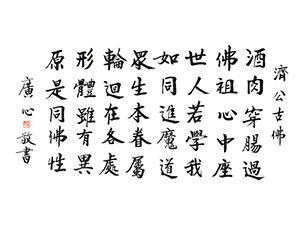 濟公古佛
酒肉穿腸過
佛祖心中座
世人若學我
如同進魔道
眾生本眷屬
輪迴在各處
形體雖有異
原是同佛性
廣心敬書